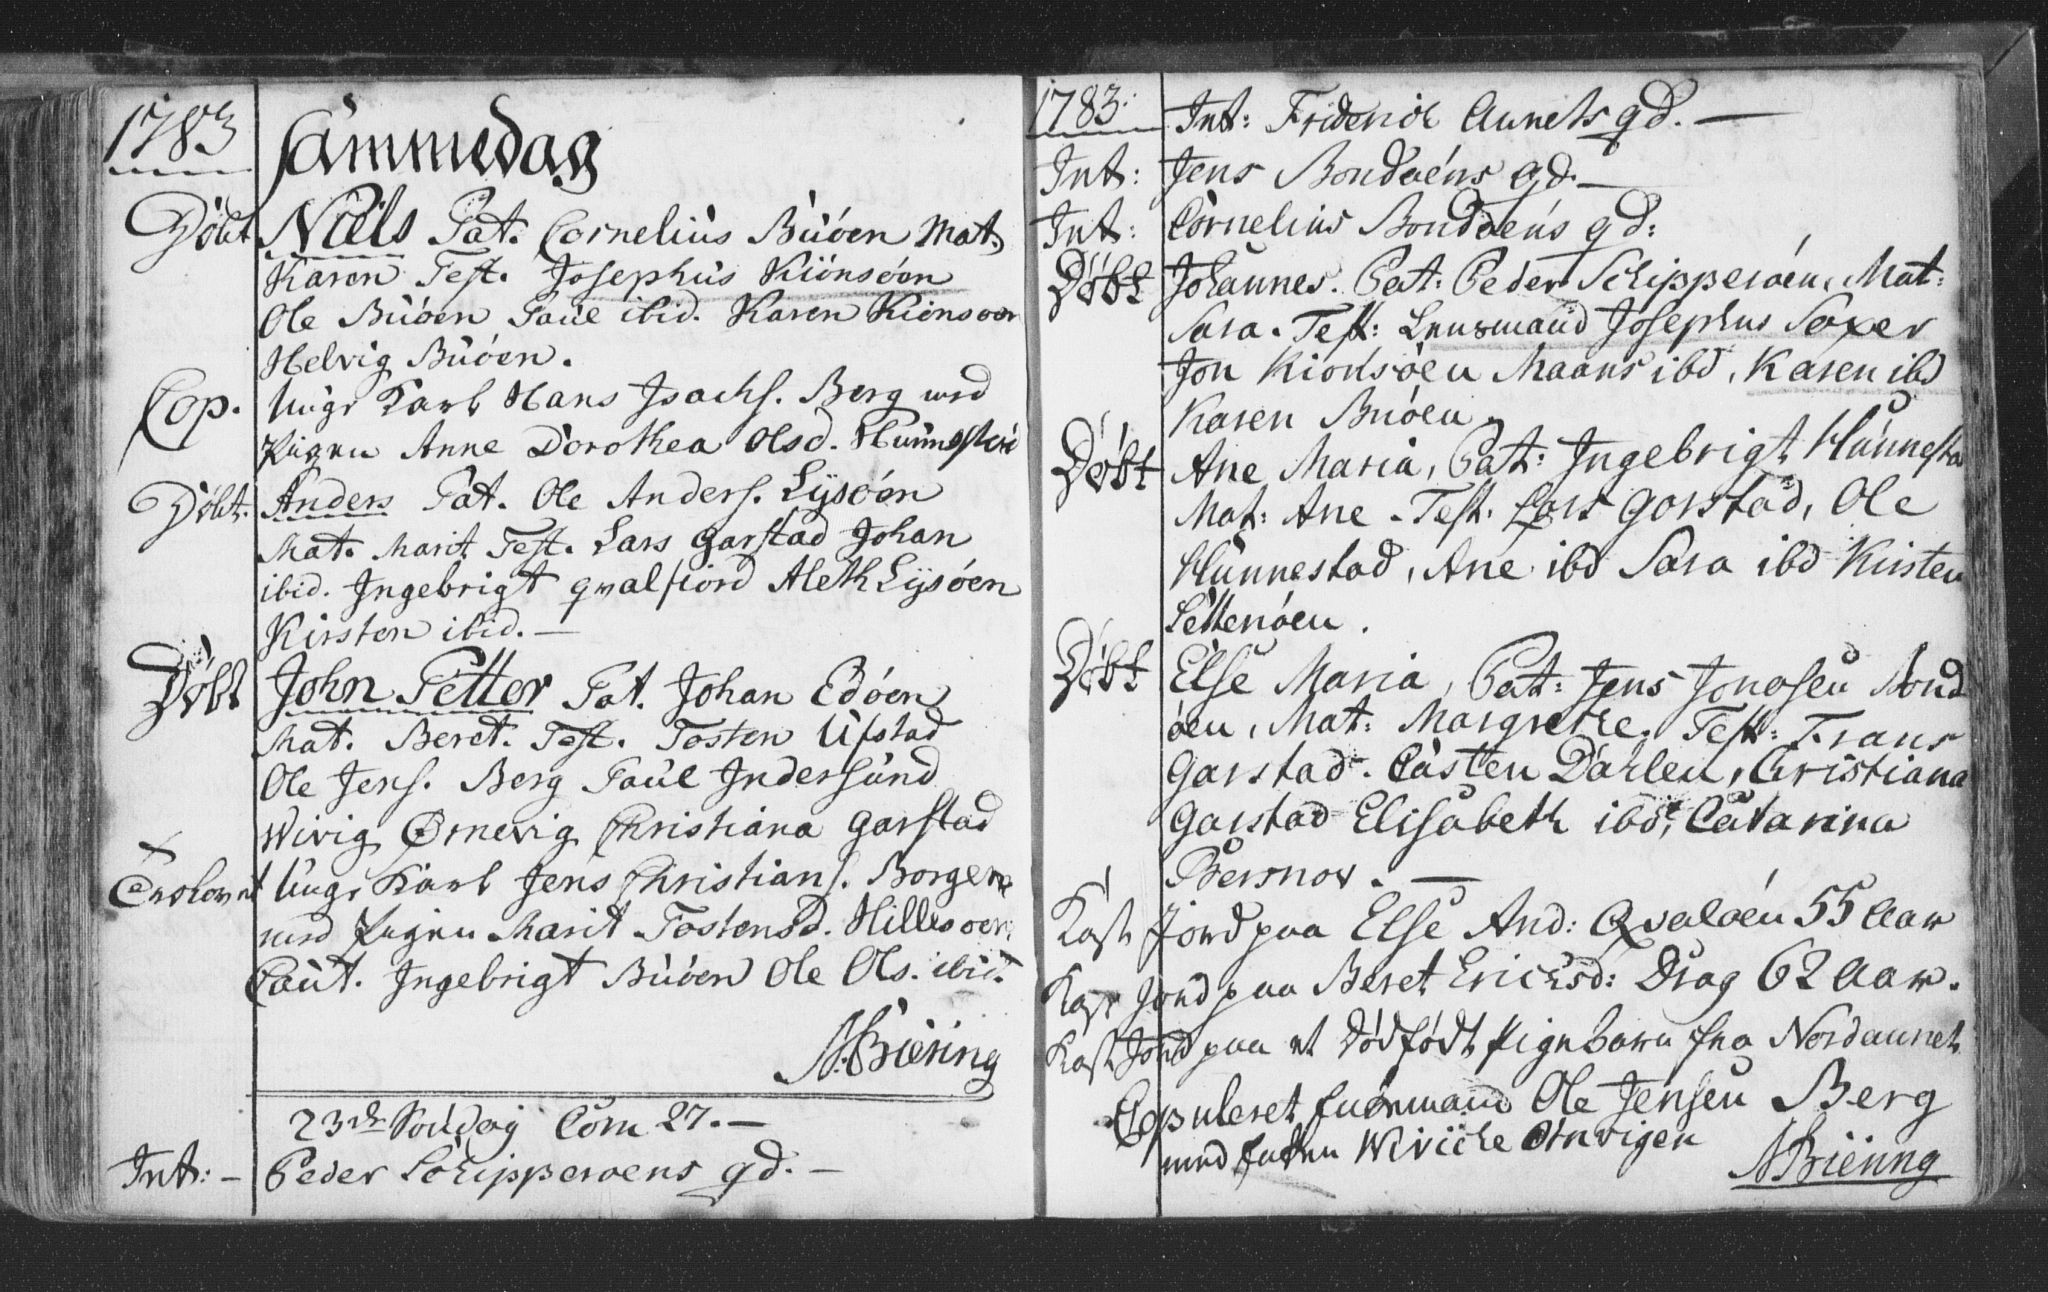 1783
sammedag
Döbt Niels Pat. Cornelius Büöen Mat.
Karen Test. Josephus Kiönsöen
Ole Büöen Paul ibid. Karen Kionsoen
Helvig Büöen.
Cop. Unge Karl Hans Isachs. Berg med
Pigen Anne Dorothea Olsd. Hunnestad
Döbt. Anders Pat. Ole Anders. Lysöen
Mat. Marit Test. Lars Garstad Johan
ibid. Ingebrigt qvalfiord Aleth Lysöen
Kirsten ibid. —
Döbt John Petter Pat. Johan Edöen
Mat. Beret. Test. Tosten Ufstad
Ole Jens. Berg Paul Indersund
Wivig Ørnevig Christiana Garstad
Unge Karl Jens Christians. Borgen
med Pigen Marit Tostensd. Hillesoen
Caut. Ingebrigt Büöen Ole Ols. ibid.
N. Biering
23de Söndag Com 27. —
Int: — Peder Schipperoens gd. —
1783: Int: Friderich Aunets gd. —
Int: Jens Bondöens gd. —
Int: Cornelius Bondöens gd:
Döbt Johannes. Pat: Peder Schipperöen, Mat:
Sara. Test: Lensmand Josephus Saxer
Jon Kionsöen Maans ibd, Karen ibd
Karen Buöen.
Döbt Ane Maria, Pat: Ingebrigt Hunnesta
Mat: Ane. Test. Lars Garstad, Ole
Hunnestad, Ane ibd Sara ibd Kirsten
Settenöen.
Döbt Else Maria, Pat: Jens Jonasen Bond
öen, Mat: Margrethe. Test: Frans
Garstad. Casten Dahlen, Christiana
Garstad Elisabeth ibd, Catarina
Kast Jord paa Else And: Qvalöen 55 Aar
Kast Jord paa Beret Ericksd: Drag 62 Aar.
Kast Jord paa et Dödfödt Pigebarn fra Nordaunet
Copuleret Ole Jensen Berg
med Wiviche Ørnvigen
N Biering